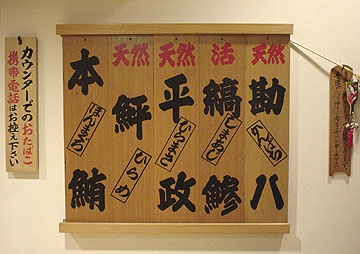 天然
勘八
かんぱち
活
縞鯵
しまあじ
天然
平政
ひらまさ
天然
鮃
ひらめ
本鮪
ほんまぐろ
カウンターでのおたばこ
携帯電話はお控え下さい